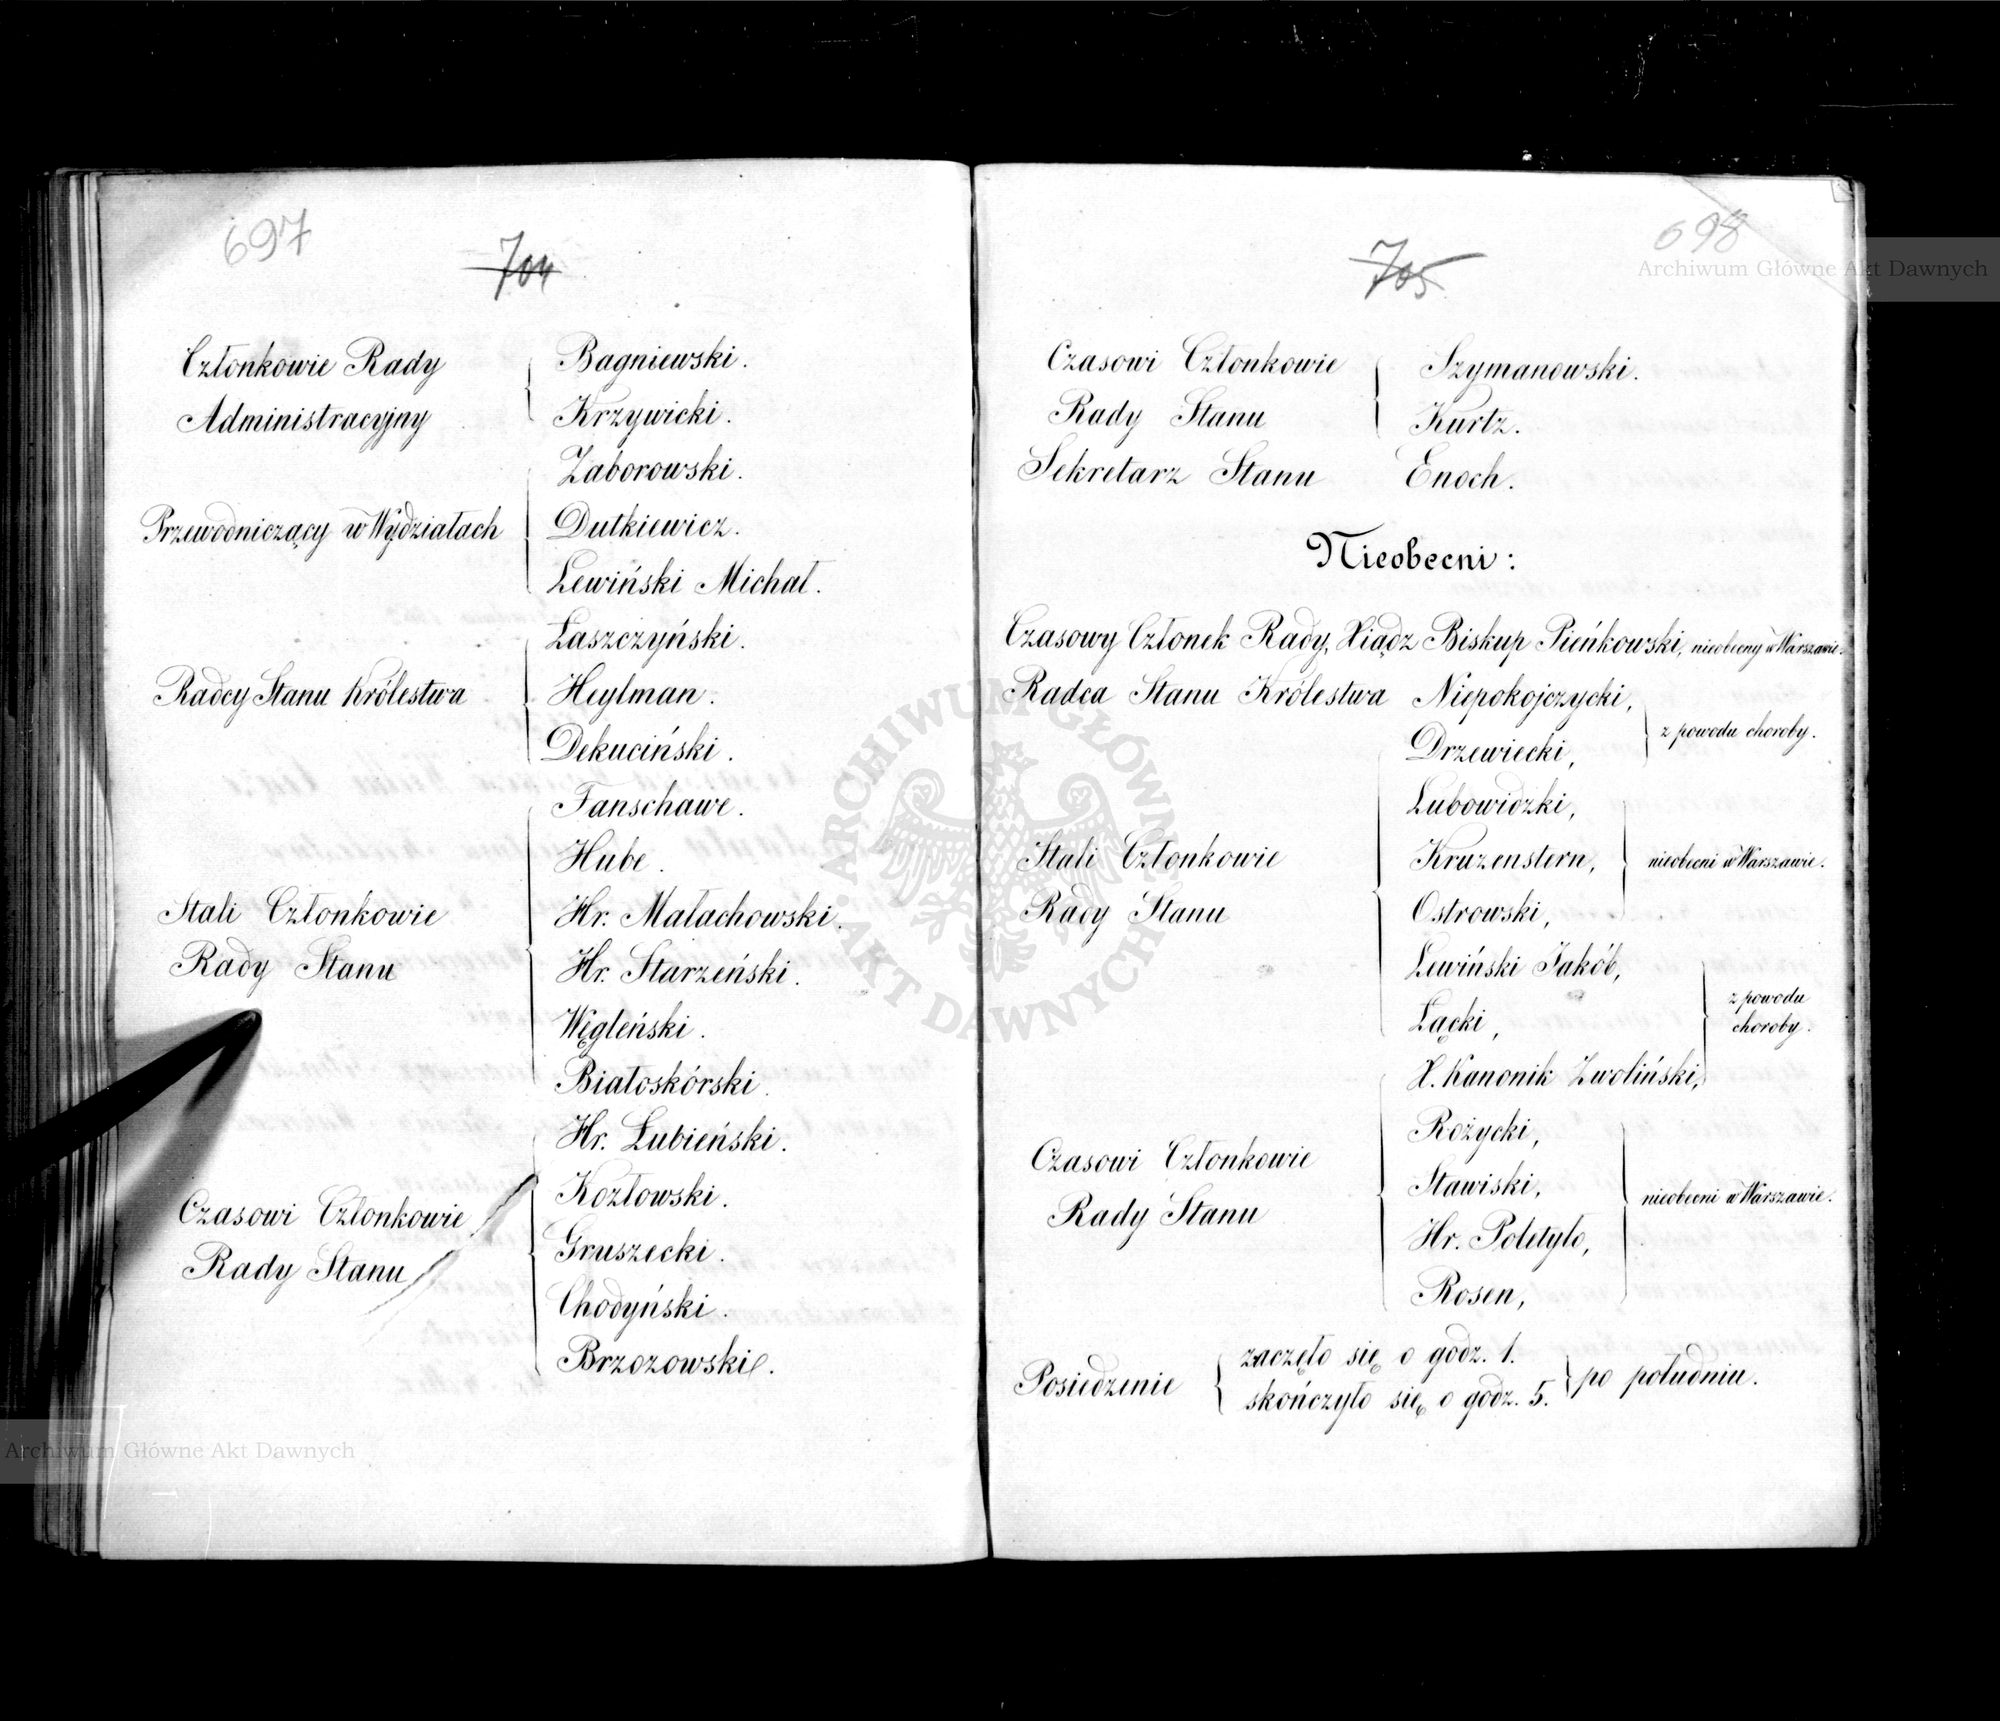 697
704
Członkowie Rady
Administracyjny
Bagniewski.
Krzywicki.
Przewodniczący w Wydziałach
Zaborowski.
Dutkiewicz.
Lewiński Michał.
Radcy Stanu Królestwa
Łaszczyński.
Heylman.
Dekuciński.
Stali Członkowie
Rady Stanu
Fanschawe.
Hube.
Hr. Małachowski.
Hr. Starzeński.
Węgleński.
Białoskórski.
Czasowi Członkowie
Rady Stanu
Hr. Łubieński.
Kozłowski.
Gruszecki.
Chodyński.
Brzozowski.
698
705
Archiwum Główne Akt Dawnych
Czasowi Członkowie
Rady Stanu
Szymanowski.
Kurtz.
Sekretarz Stanu Enoch.
Nieobecni:
Czasowy Członek Rady, Xiądz Biskup Pieńkowski, nieobecny w Warszawie.
Radca Stanu Królestwa Niepokojczycki,
Drzewiecki,
z powodu choroby.
Stali Członkowie
Rady Stanu
Lubowidzki,
Kruzenstern,
Ostrowski,
nieobecni w Warszawie.
Lewiński Jakób,
Łącki,
X. Kanonik Zwoliński,
z powodu
choroby.
Czasowi Członkowie
Rady Stanu
Rożycki,
Stawiski,
Hr. Poletyło,
Rosen,
nieobecni w Warszawie.
Posiedzenie
zaczęło się o godz. 1.
skończyło się o godz. 5.
po południu.
ARCHIWUM GŁÓWNE AKT DAWNYCH
Archiwum Główne Akt Dawnych